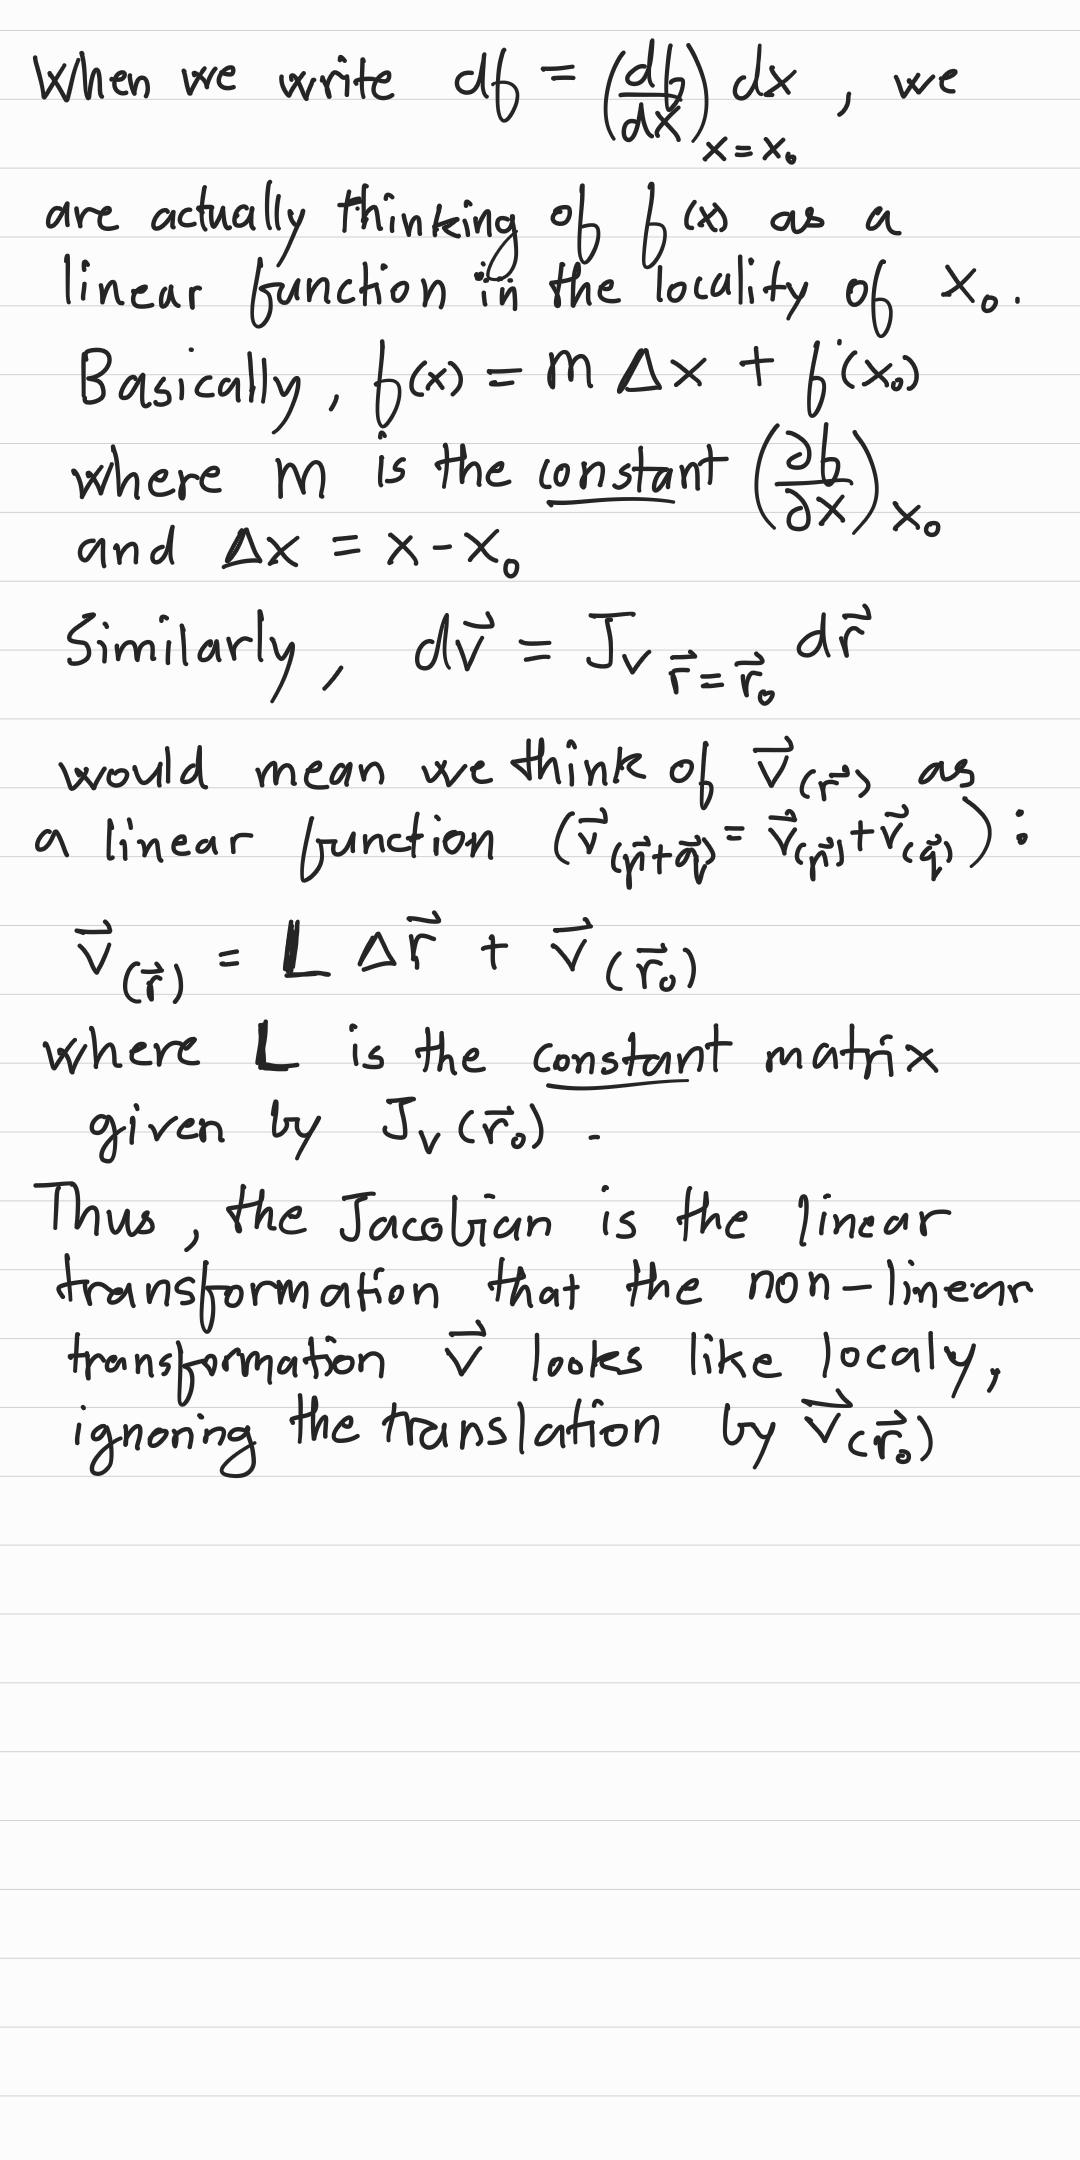 When we write df = (df/dx)_{x=x₀} dx , we
are actually thinking of f(x) as a
linear function in the locality of x₀.
Basically, f(x) = m Δx + f(x₀)
where m is the constant (∂f/∂x)_{x₀}
and Δx = x - x₀
Similarly, dv⃗ = J_v _{r⃗=r⃗₀} dr⃗
would mean we think of v⃗(r⃗) as
a linear function (v⃗(p⃗+q⃗) = v⃗(p⃗) + v⃗(q⃗)) :
v⃗(r⃗) = L Δr⃗ + v⃗(r⃗₀)
where L is the constant matrix
given by J_v(r⃗₀) .
Thus, the Jacobian is the linear
transformation that the non-linear
transformation v⃗ looks like locally,
ignoring the translation by v⃗(r⃗₀)